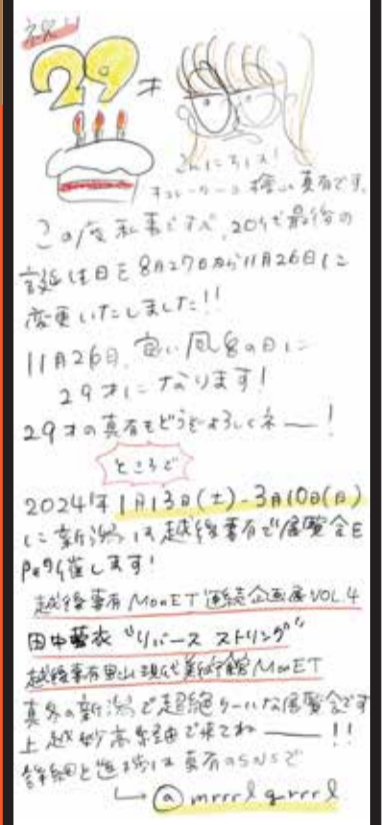 祝!!
29才
こんにちは!
キュレーターの檜山真有です。
この度私事ですが、20代最後の
誕生日を8月27日から11月26日に
変更いたしました!!
11月26日、良い風呂の日に
29才になります!
29才の真有もどうぞよろしくネー!
ところで
2024年1月13日(土)-3月10日(日)
に新潟は越後妻有で展覧会を
開催します!
越後妻有 MonET 連続企画展 VOL.4
田中藍衣 "リバース ストリング"
越後妻有里山現代美術館 MonET
真冬の新潟で超絶クールな展覧会です
上越妙高経由で来てねー!!
詳細と進捗は真有のSNSで
@mrrrlgrrrl